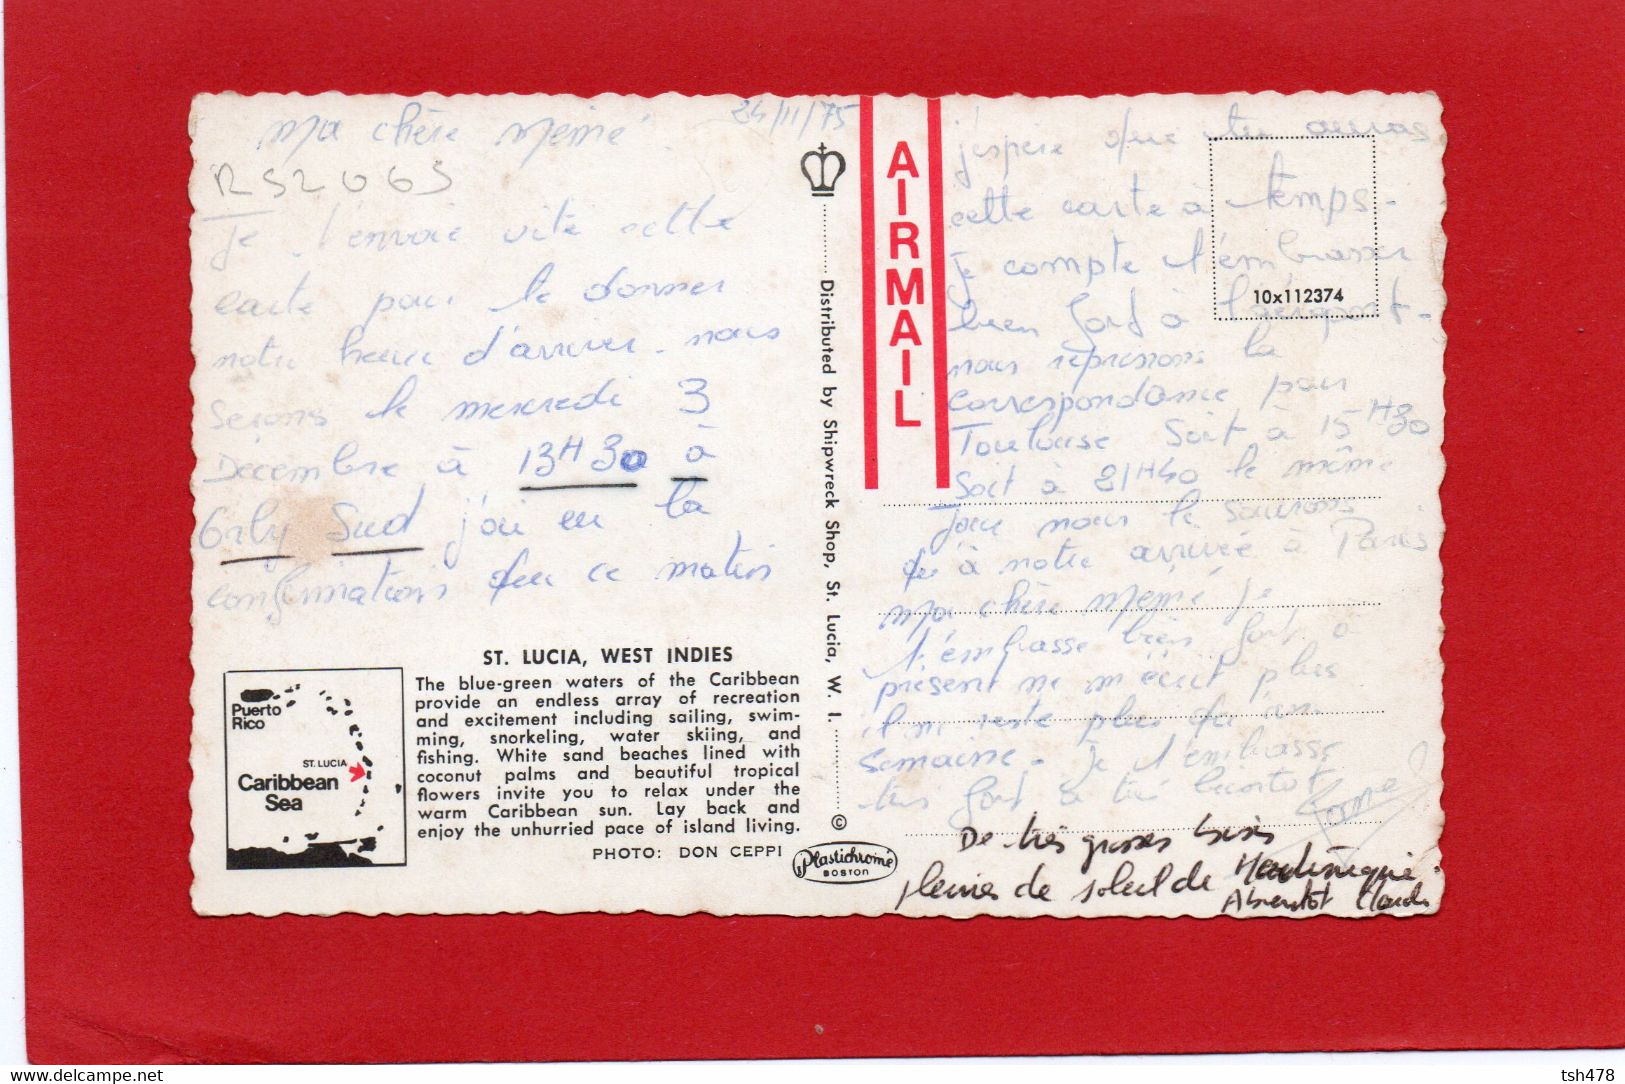 24/11/75
Ma chère Mémé
RS2065
Je t'envoie vite cette
carte pour te donner
notre heure d'arrivée. nous
serons le mercredi 3
Decembre à 13H30 à
Orly Sud j'ai eu la
confirmation que ce matin
ST. LUCIA, WEST INDIES
The blue-green waters of the Caribbean
provide an endless array of recreation
and excitement including sailing, swim-
ming, snorkeling, water skiing, and
fishing. White sand beaches lined with
coconut palms and beautiful tropical
flowers invite you to relax under the
warm Caribbean sun. Lay back and
enjoy the unhurried pace of island living.
PHOTO: DON CEPPI
Puerto
Rico
ST. LUCIA
Caribbean
Sea
Distributed by Shipwreck Shop, St. Lucia, W. I.
©
Plastichrome
BOSTON
AIRMAIL
10x112374
j'espère que tu auras
cette carte à temps.
Je compte t'embrasser
bien fort à l'aéroport.
nous reprenons la
correspondance pour
Toulouse Soit à 15H30
Soit à 21H40 le même
Jour nous le saurons
qu'à notre arrivée à Paris
Ma chère Mémé Je
t'embrasse bien fort à
présent ne m'écrit plus
il ne reste plus qu'une
semaine. Je t'embrasse
très fort à très bientôt
De très grosses bises
pleines de soleil de Martinique.
A bientôt Claude
tsh478